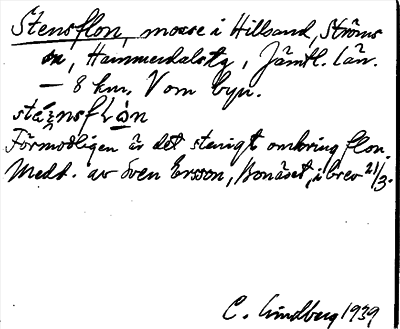 Stensflon, mosse i Hillsand, Ströms
sn, Hammerdals tg, Jämtl. län.
– 8 km. V om byn.
Förmodligen är det stenigt omkring flon.
Medd. av Sven Ersson, Bonäset, i brev 21/3.
C. Lindberg 1939